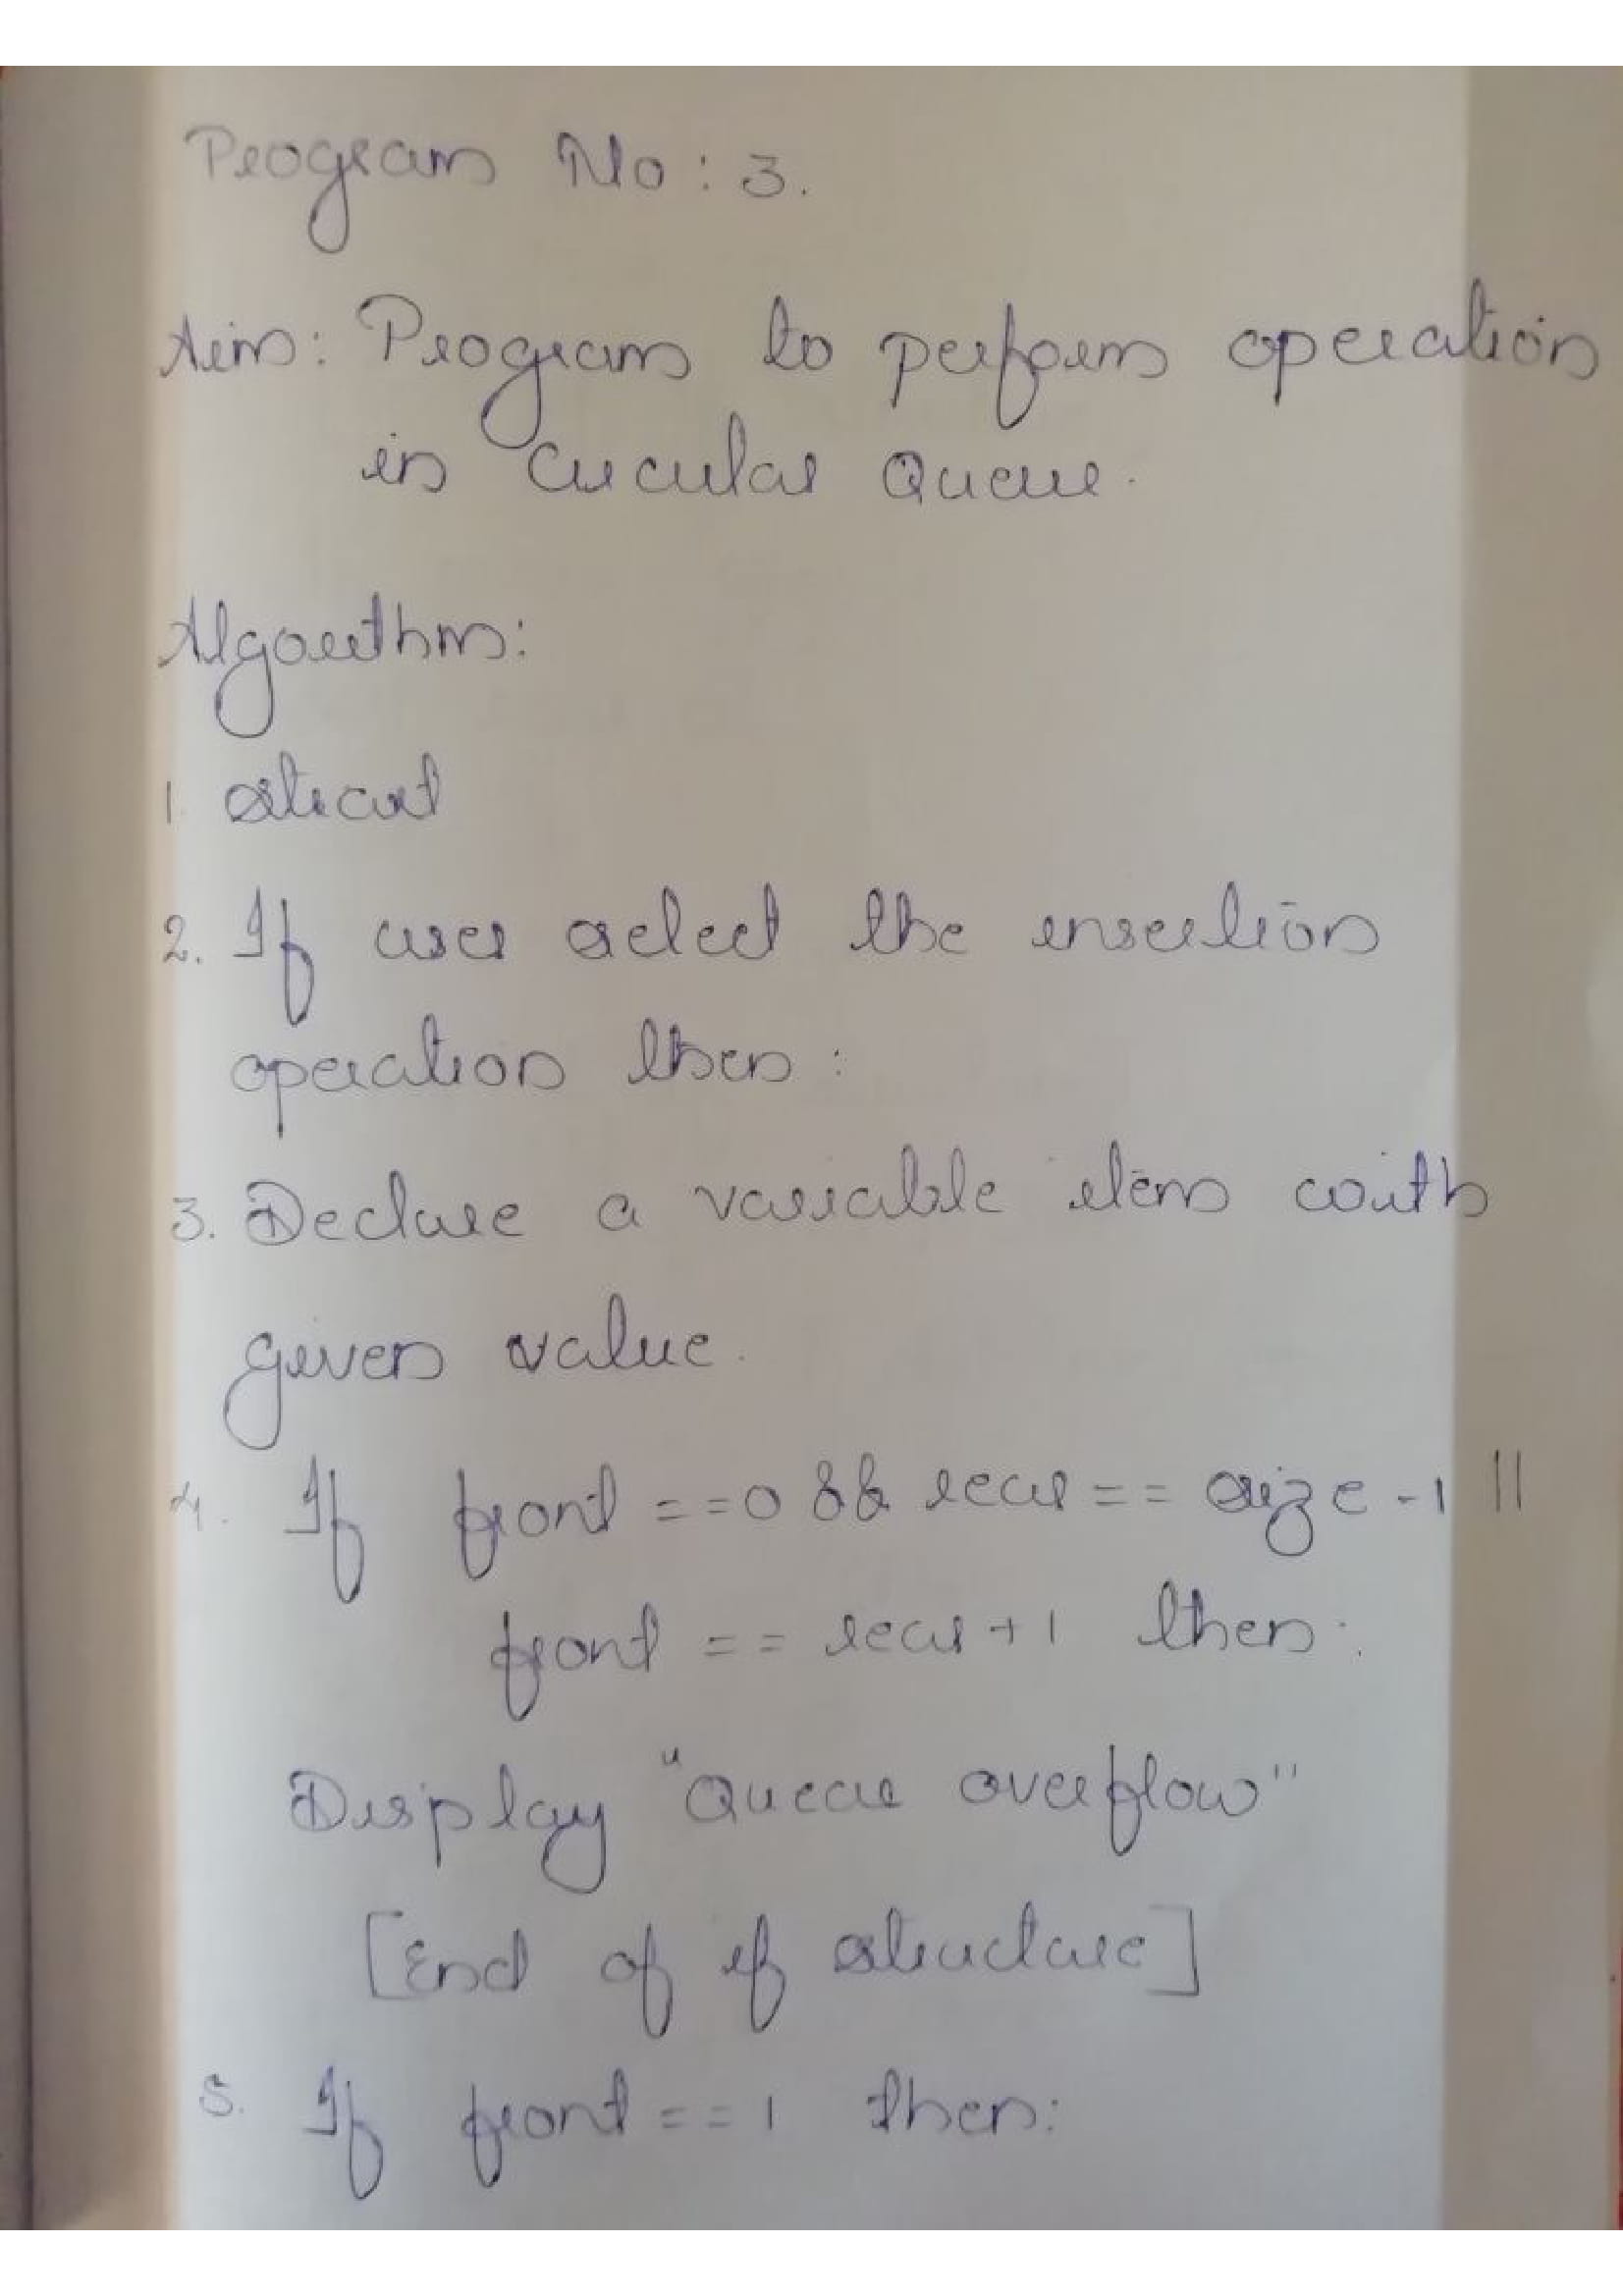 Program No: 3.
Aim: Program to perform operation
in Circular Queue.
Algorithm:
1. start
2. If user select the insertion
operation then:
3. Declare a variable item with
given value.
4. If front ==0 && rear == size -1 ||
front == rear +1 then:
Display "Queue overflow"
[End of if structure]
5. If front == 1 then: